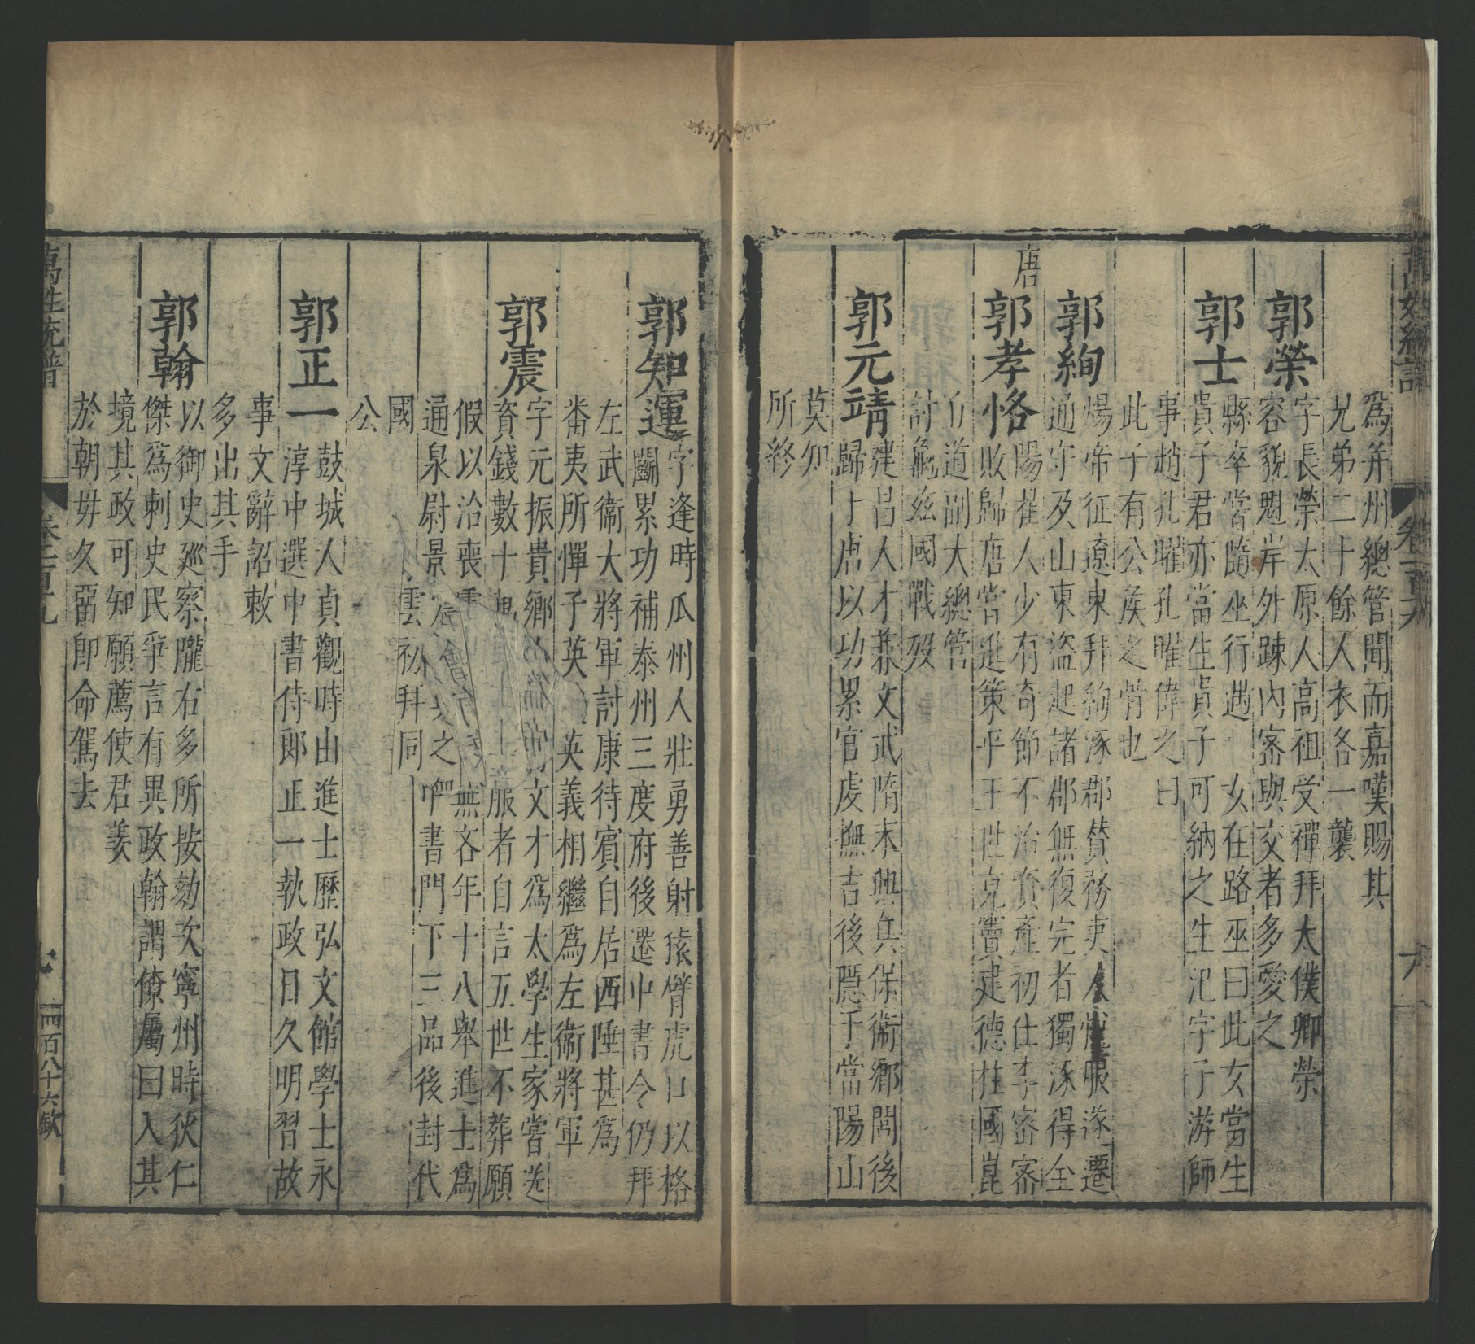 為并州總管聞而嘉嘆賜其
兄弟二十餘人衣各一襲
郭榮
字長榮太原人高祖受禪拜太僕卿榮
容貌魁岸外疎內密與交者多愛之
郭士
縣卒嘗隨巫行遇女在路巫曰此女當生
貴子君亦當生貴子可納之生汜字子游師
事趙孔曜孔曜偉之曰
此子有公族之情也
郭絢
煬帝征遼東拜絢涿郡贊務吏人悅服遂遷
通守及山東盜起諸郡無復完者獨涿得全
唐
郭孝恪
陽翟人少有奇節不治貲產初仕李密密
敗歸唐嘗進策平王世充竇建德柱國崑
丘道副大總管
討龜兹國戰歿
郭元靖
建昌人才兼文武隋末興兵保衞鄉閭後
歸于唐以功累官虔撫吉後隱于當陽山
莫知
所終
萬姓統譜
卷一百十九
郭知運
字逢時瓜州人壯勇善射猿臂虎口以格
鬬累功補泰州三度府後遷中書令仍拜
左武衞大將軍討康待賓自居西陲甚為
畨夷所憚子英 英義相繼為左衞將軍
郭震
字元振貴鄉 文才為太學生家嘗送
資錢數十 服者自言五世不葬願
假以洽喪 無吝年十八舉進士為
通泉尉景 之 中書門下三品後封代
國 雲初拜同
公
郭正一
鼓城人貞觀時由進士歷弘文館學士永
淳中遷中書侍郎正一執政日久明習故
事文辭詔敕
多出其手
郭翰
以御史廵察隴右多所按劾次寧州時狄仁
傑為刺史民爭言有異政翰謂僚屬曰入其
境其政可知願薦使君美
於朝毋久留即命駕去
萬姓統譜
四百八十六